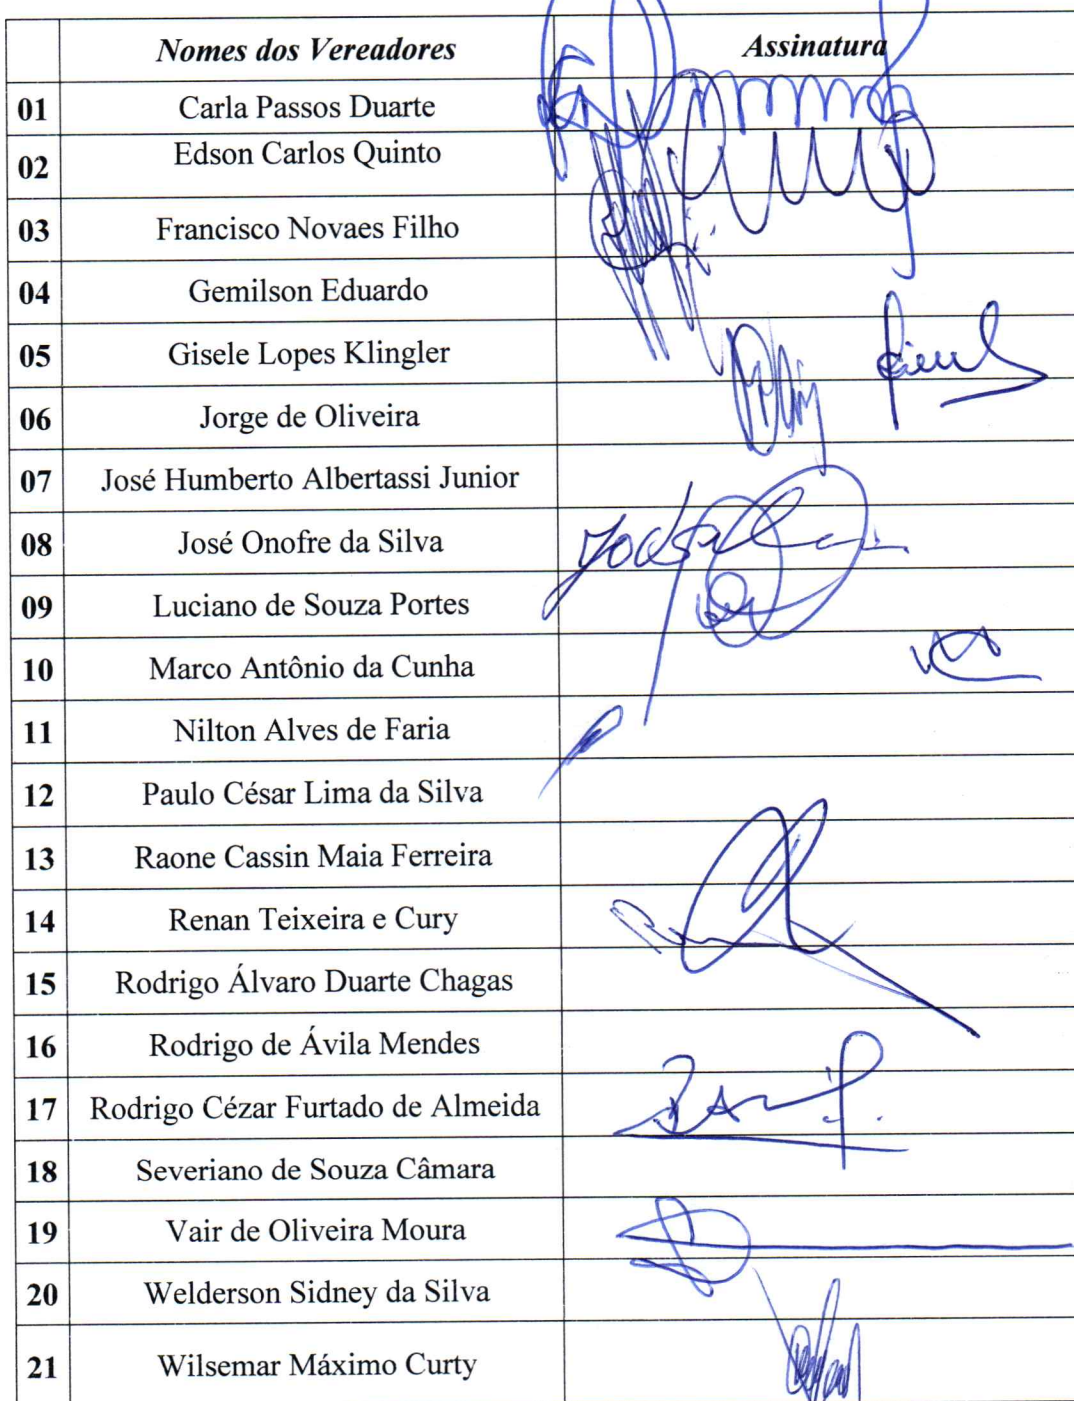 Nomes dos Vereadores Assinatura
01 Carla Passos Duarte
02 Edson Carlos Quinto
03 Francisco Novaes Filho
04 Gemilson Eduardo
05 Gisele Lopes Klingler
06 Jorge de Oliveira
07 José Humberto Albertassi Junior
08 José Onofre da Silva
09 Luciano de Souza Portes
10 Marco Antônio da Cunha
11 Nilton Alves de Faria
12 Paulo César Lima da Silva
13 Raone Cassin Maia Ferreira
14 Renan Teixeira e Cury
15 Rodrigo Álvaro Duarte Chagas
16 Rodrigo de Ávila Mendes
17 Rodrigo Cézar Furtado de Almeida
18 Severiano de Souza Câmara
19 Vair de Oliveira Moura
20 Welderson Sidney da Silva
21 Wilsemar Máximo Curty